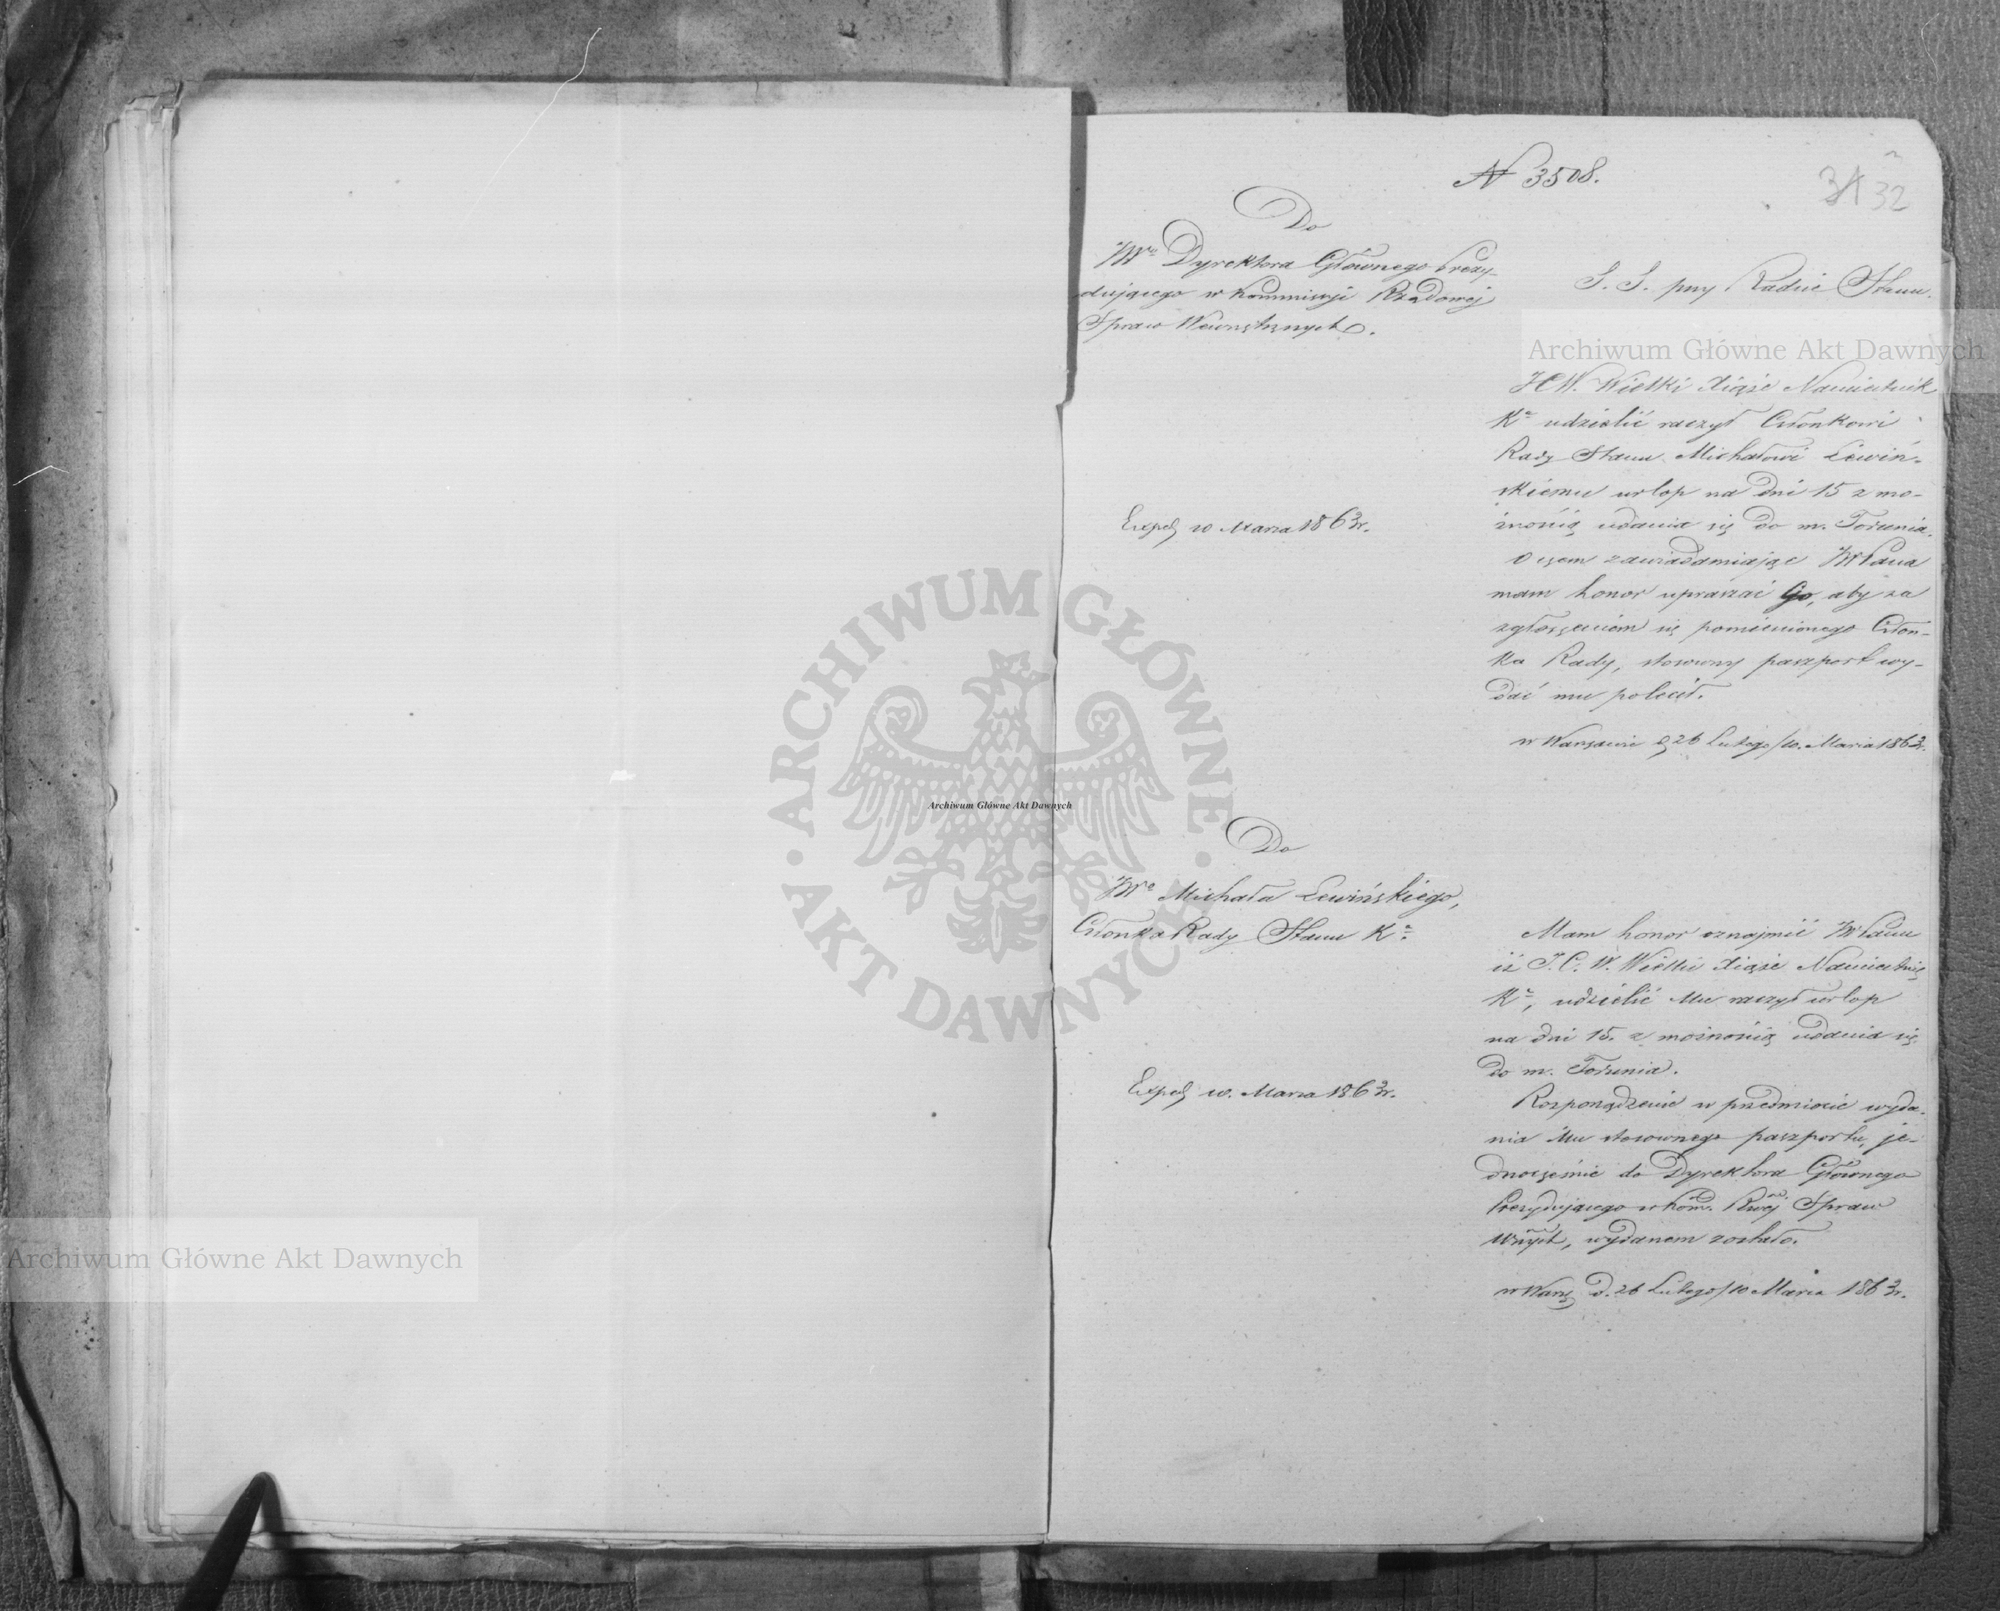 N 3508.
31 32
Do
JWo Dyrektora Głównego Prezy-
dującego w Kommissyi Rządowej
Spraw Wewnętrznych.
S. S. przy Radzie Stanu.
Archiwum Główne Akt Dawnych
JCW. Wielki Xiąże Namiestnik
Kr udzielić raczył Członkowi
Rady Stanu Michałowi Lewiń-
skiemu urlop na dni 15 z mo-
żnością udania się do m. Torunia.
Exped 10 Marca 1863 r.
O czem zawiadamiając JWPana
mam honor upraszać Go, aby za
zgłoszeniem się pomienionego Człon-
ka Rady, stosowny paszport wy-
dać mu polecił.
w Warszawie d 26 Lutego/10. Marca 1863 r.
ARCHIWUM GŁÓWNE AKT DAWNYCH
Archiwum Główne Akt Dawnych
Do
JWo Michała Lewińskiego,
Członka Rady Stanu Kr.
Mam honor oznajmić JWPanu
iż J. C. W. Wielki Xiąże Namiestnik
Kr, udzielić Mu raczył urlop
na dni 15. z możnością udania się
do m. Torunia.
Exped 10. Marca 1863 r.
Rozporządzenie w przedmiocie wyda-
nia Mu stosownego paszportu, je-
dnocześnie do Dyrektora Głównego
Prezydującego w Kom. Rwej Spraw
Wnych, wydanem zostało.
Archiwum Główne Akt Dawnych
w Warsz d. 26 Lutego/10 Marca 1863 r.